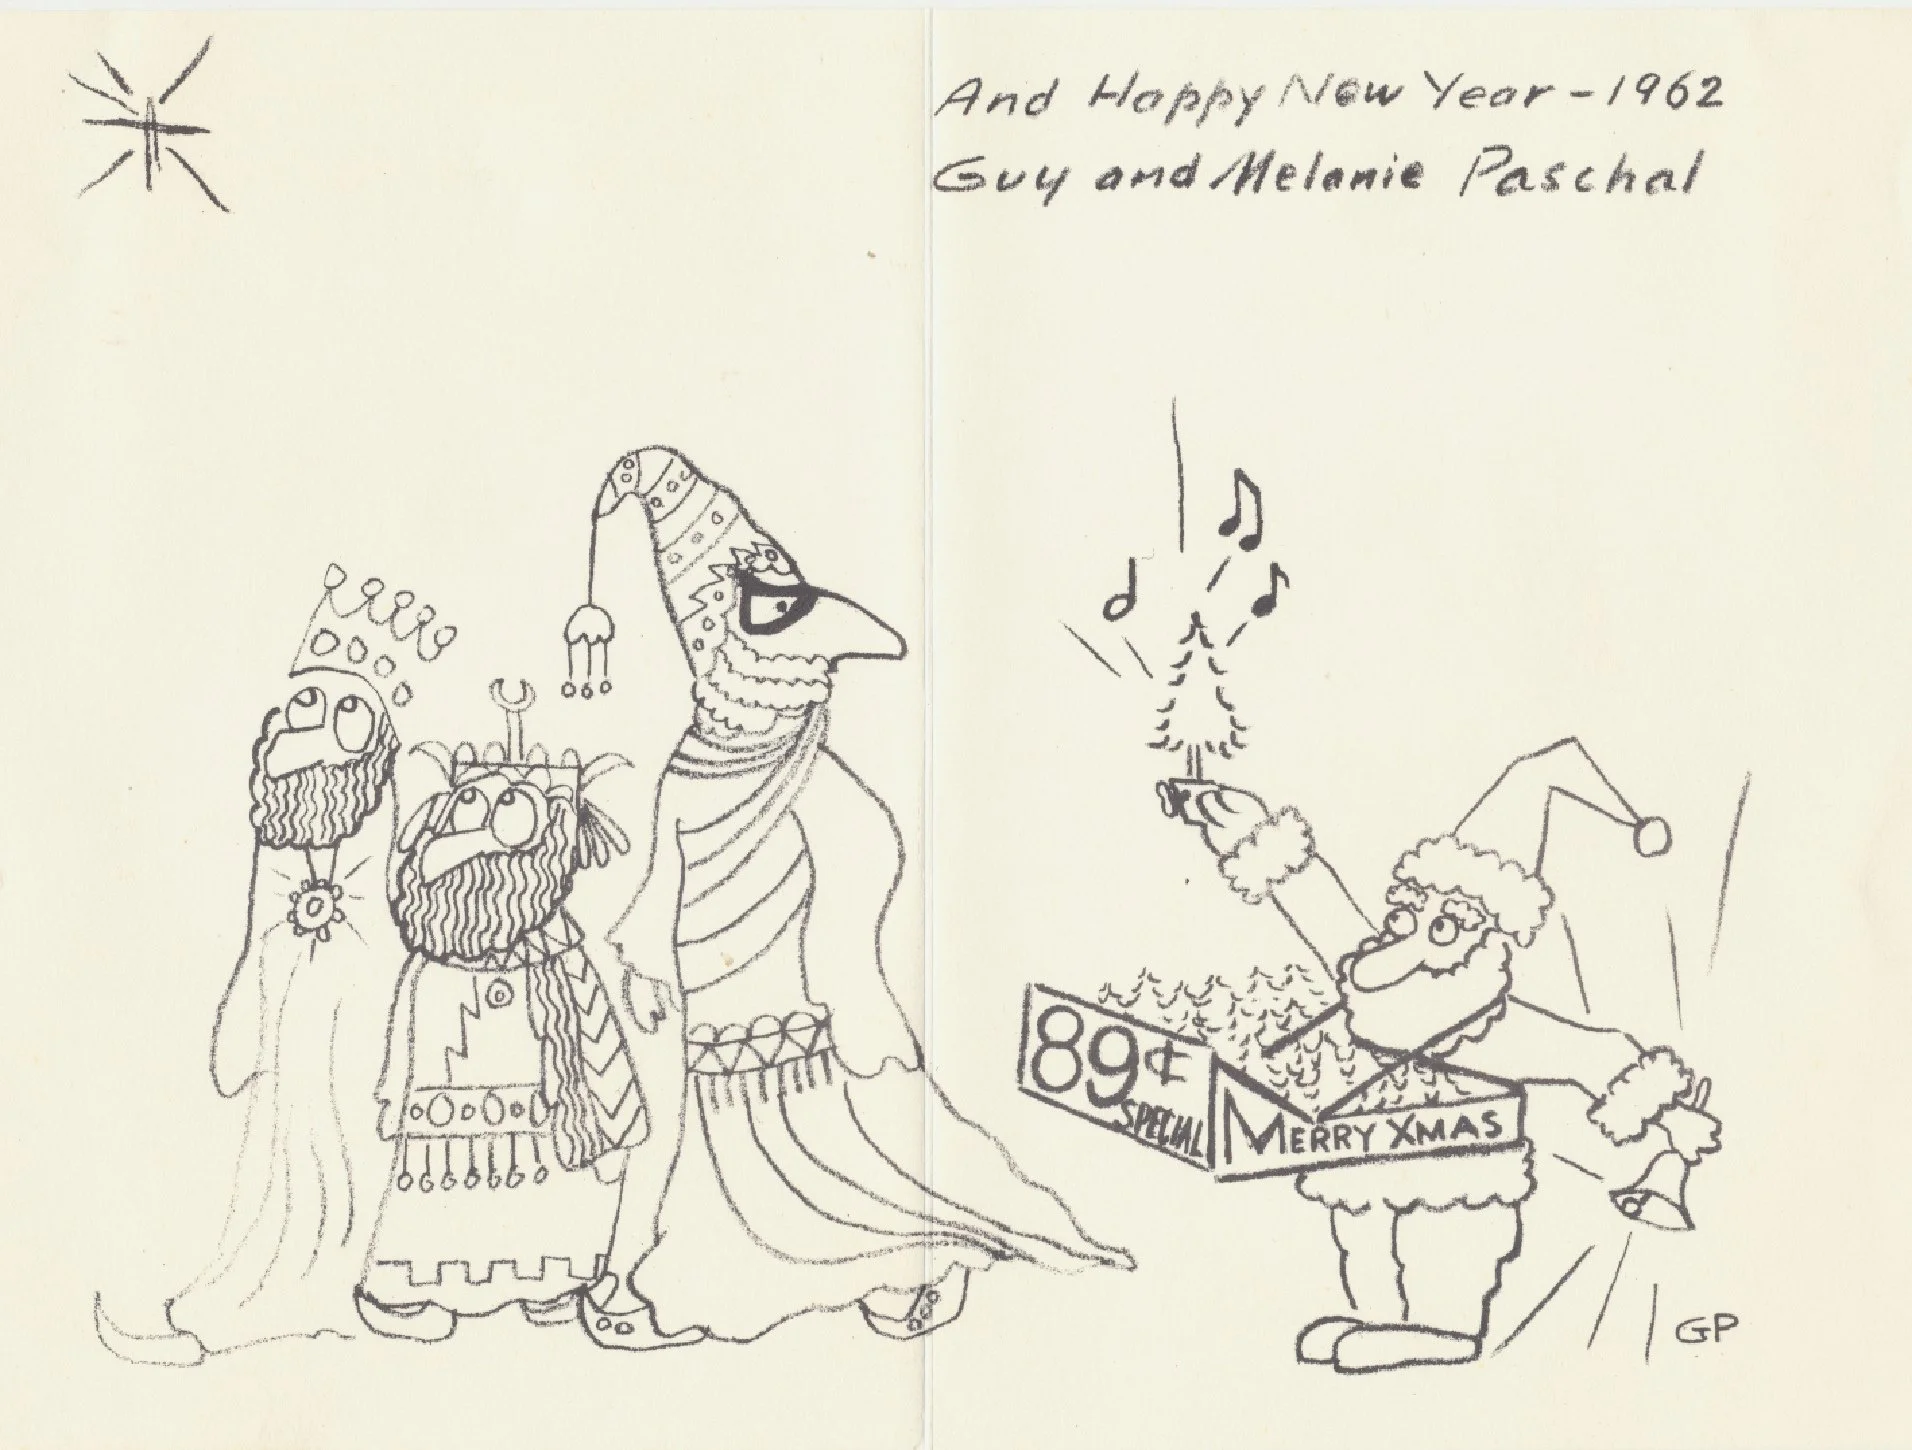 And Happy New Year - 1962
Guy and Melanie Paschal
89¢
SPECIAL
MERRY XMAS
GP